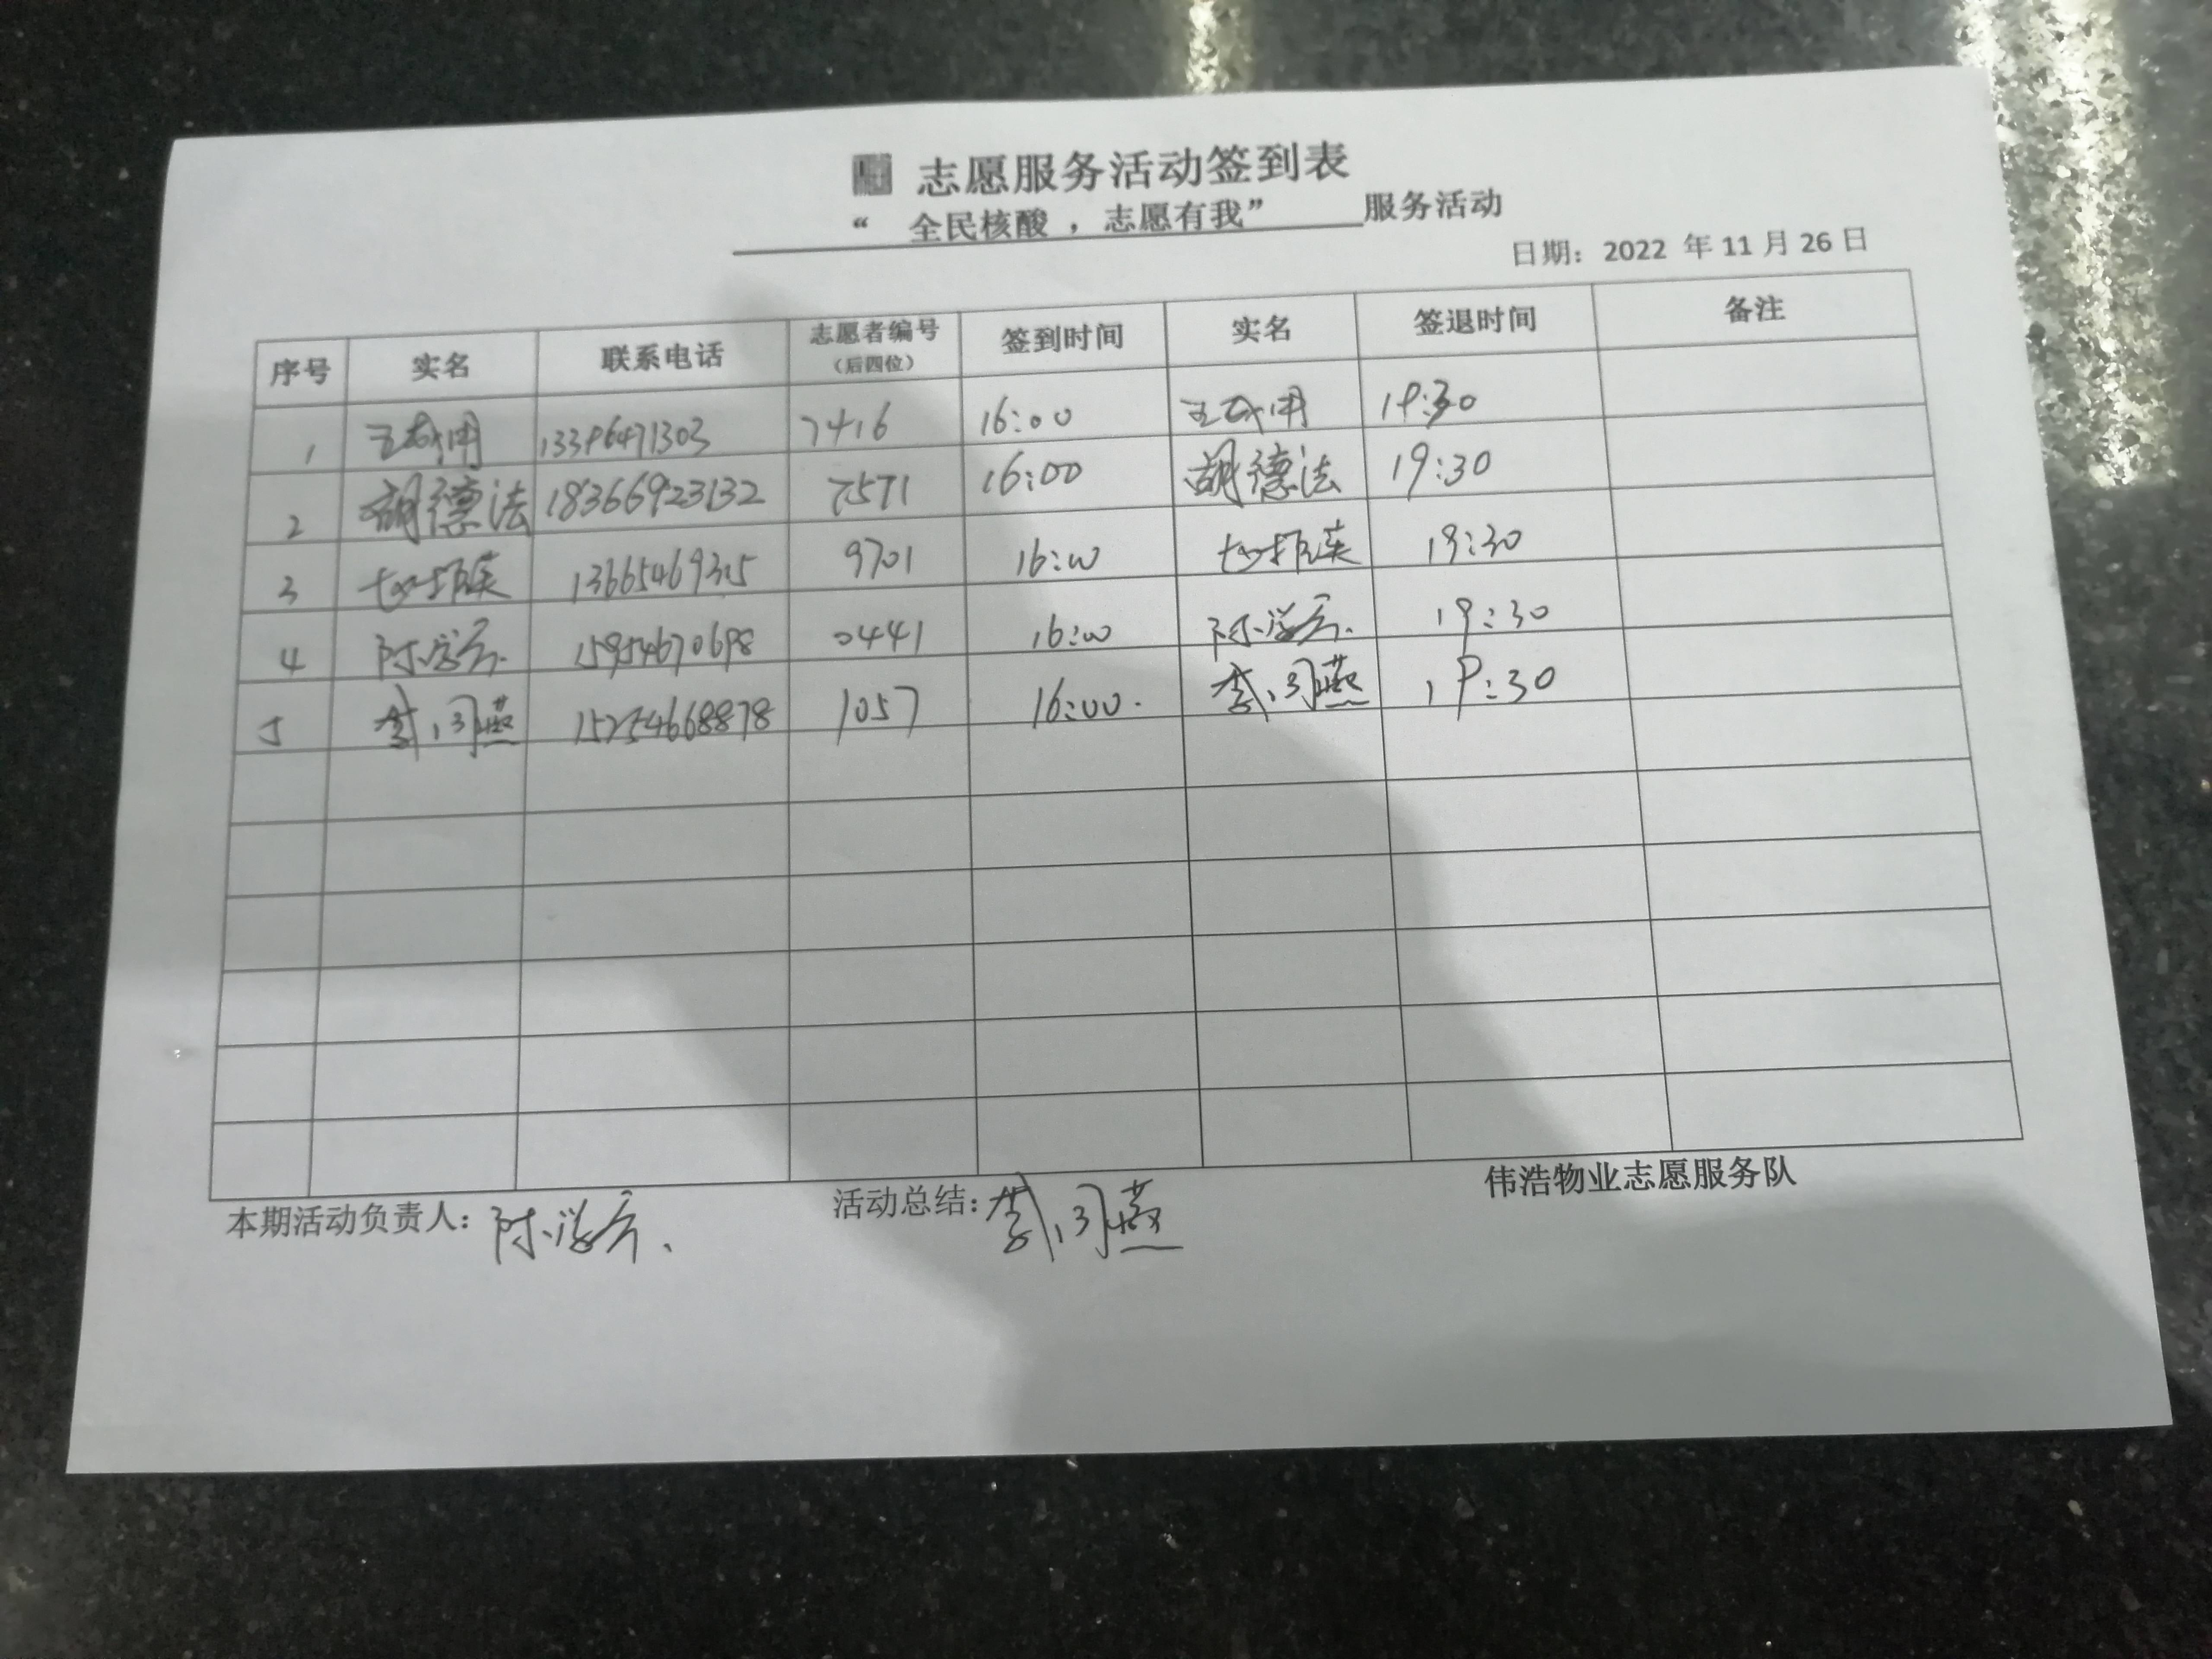 志愿服务活动签到表
“ 全民核酸 ，志愿有我” 服务活动
日期：2022 年 11 月 26 日
序号 实名 联系电话 志愿者编号（后四位） 签到时间 实名 签退时间 备注
1 13396471303 7416 16:00 19:30
2 胡德法 18366923132 7571 16:00 胡德法 19:30
3 9701 16:00 19:30
4 陈学云 15954670698 0441 16:00 陈学云 19:30
5 李闪燕 15254668878 1057 16:00 李闪燕 19:30
本期活动负责人：陈学云 活动总结：李闪燕 伟浩物业志愿服务队